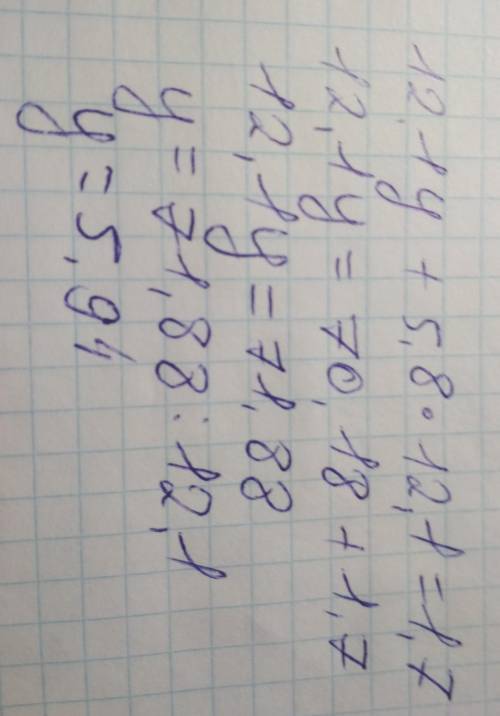 12,1y + 5,8 · 12,1 = 1,7
12,1y = 70,18 + 1,7
12,1y = 71,88
y = 71,88 : 12,1
y = 5,94